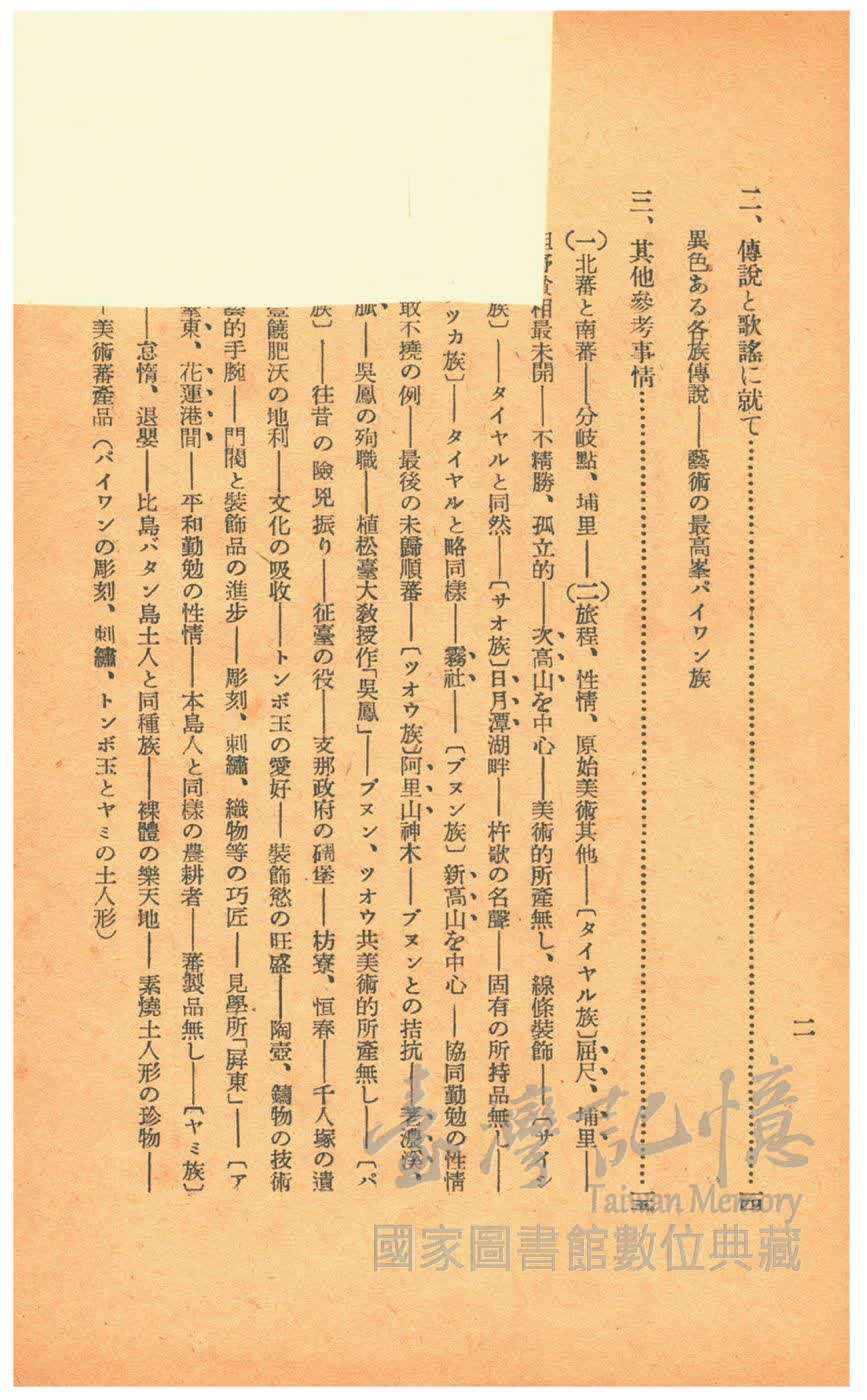 二
二、傳說と歌謠に就て……………………………………四
異色ある各族傳說——藝術の最高峯パイワン族
三、其他參考事情……………………………………五
(一)北蕃と南蕃——分岐點、埔里——(二)旅程、性情、原始美術其他——〔タイヤル族〕屈尺、埔里——
相最未開——不精勝、孤立的——次高山を中心——美術的所產無し、線條裝飾——〔サイシ
族〕——タイヤルと同然——〔サオ族〕日月潭湖畔——杵歌の名聲——固有の所持品無し——
ツカ族〕——タイヤルと略同樣——霧社——〔ブヌン族〕新高山を中心——協同勤勉の性情
敢不撓の例——最後の未歸順蕃——〔ツオウ族〕阿里山神木——ブヌンとの拮抗——老濃溪、
——吳鳳の殉職——植松臺大教授作「吳鳳」——ブヌン、ツオウ共美術的所產無し——〔パ
族〕——往昔の險兇振り——征臺の役——支那政府の碉堡——枋寮、恒春——千人塚の遺
豐饒肥沃の地利——文化の吸收——トンボ玉の愛好——裝飾慾の旺盛——陶壺、鑄物の技術
藝的手腕——門閥と裝飾品の進步——彫刻、刺繡、織物等の巧匠——見學所「屛東」——〔ア
臺東、花蓮港間——平和勤勉の性情——本島人と同樣の農耕者——蕃製品無し——〔ヤミ族〕
——怠惰、退嬰——比島バタン島土人と同種族——裸體の樂天地——素燒土人形の珍物——
—美術蕃產品(パイワンの彫刻、刺繡、トンボ玉とヤミの土人形)
臺灣記憶
Taiwan Memory
國家圖書館數位典藏